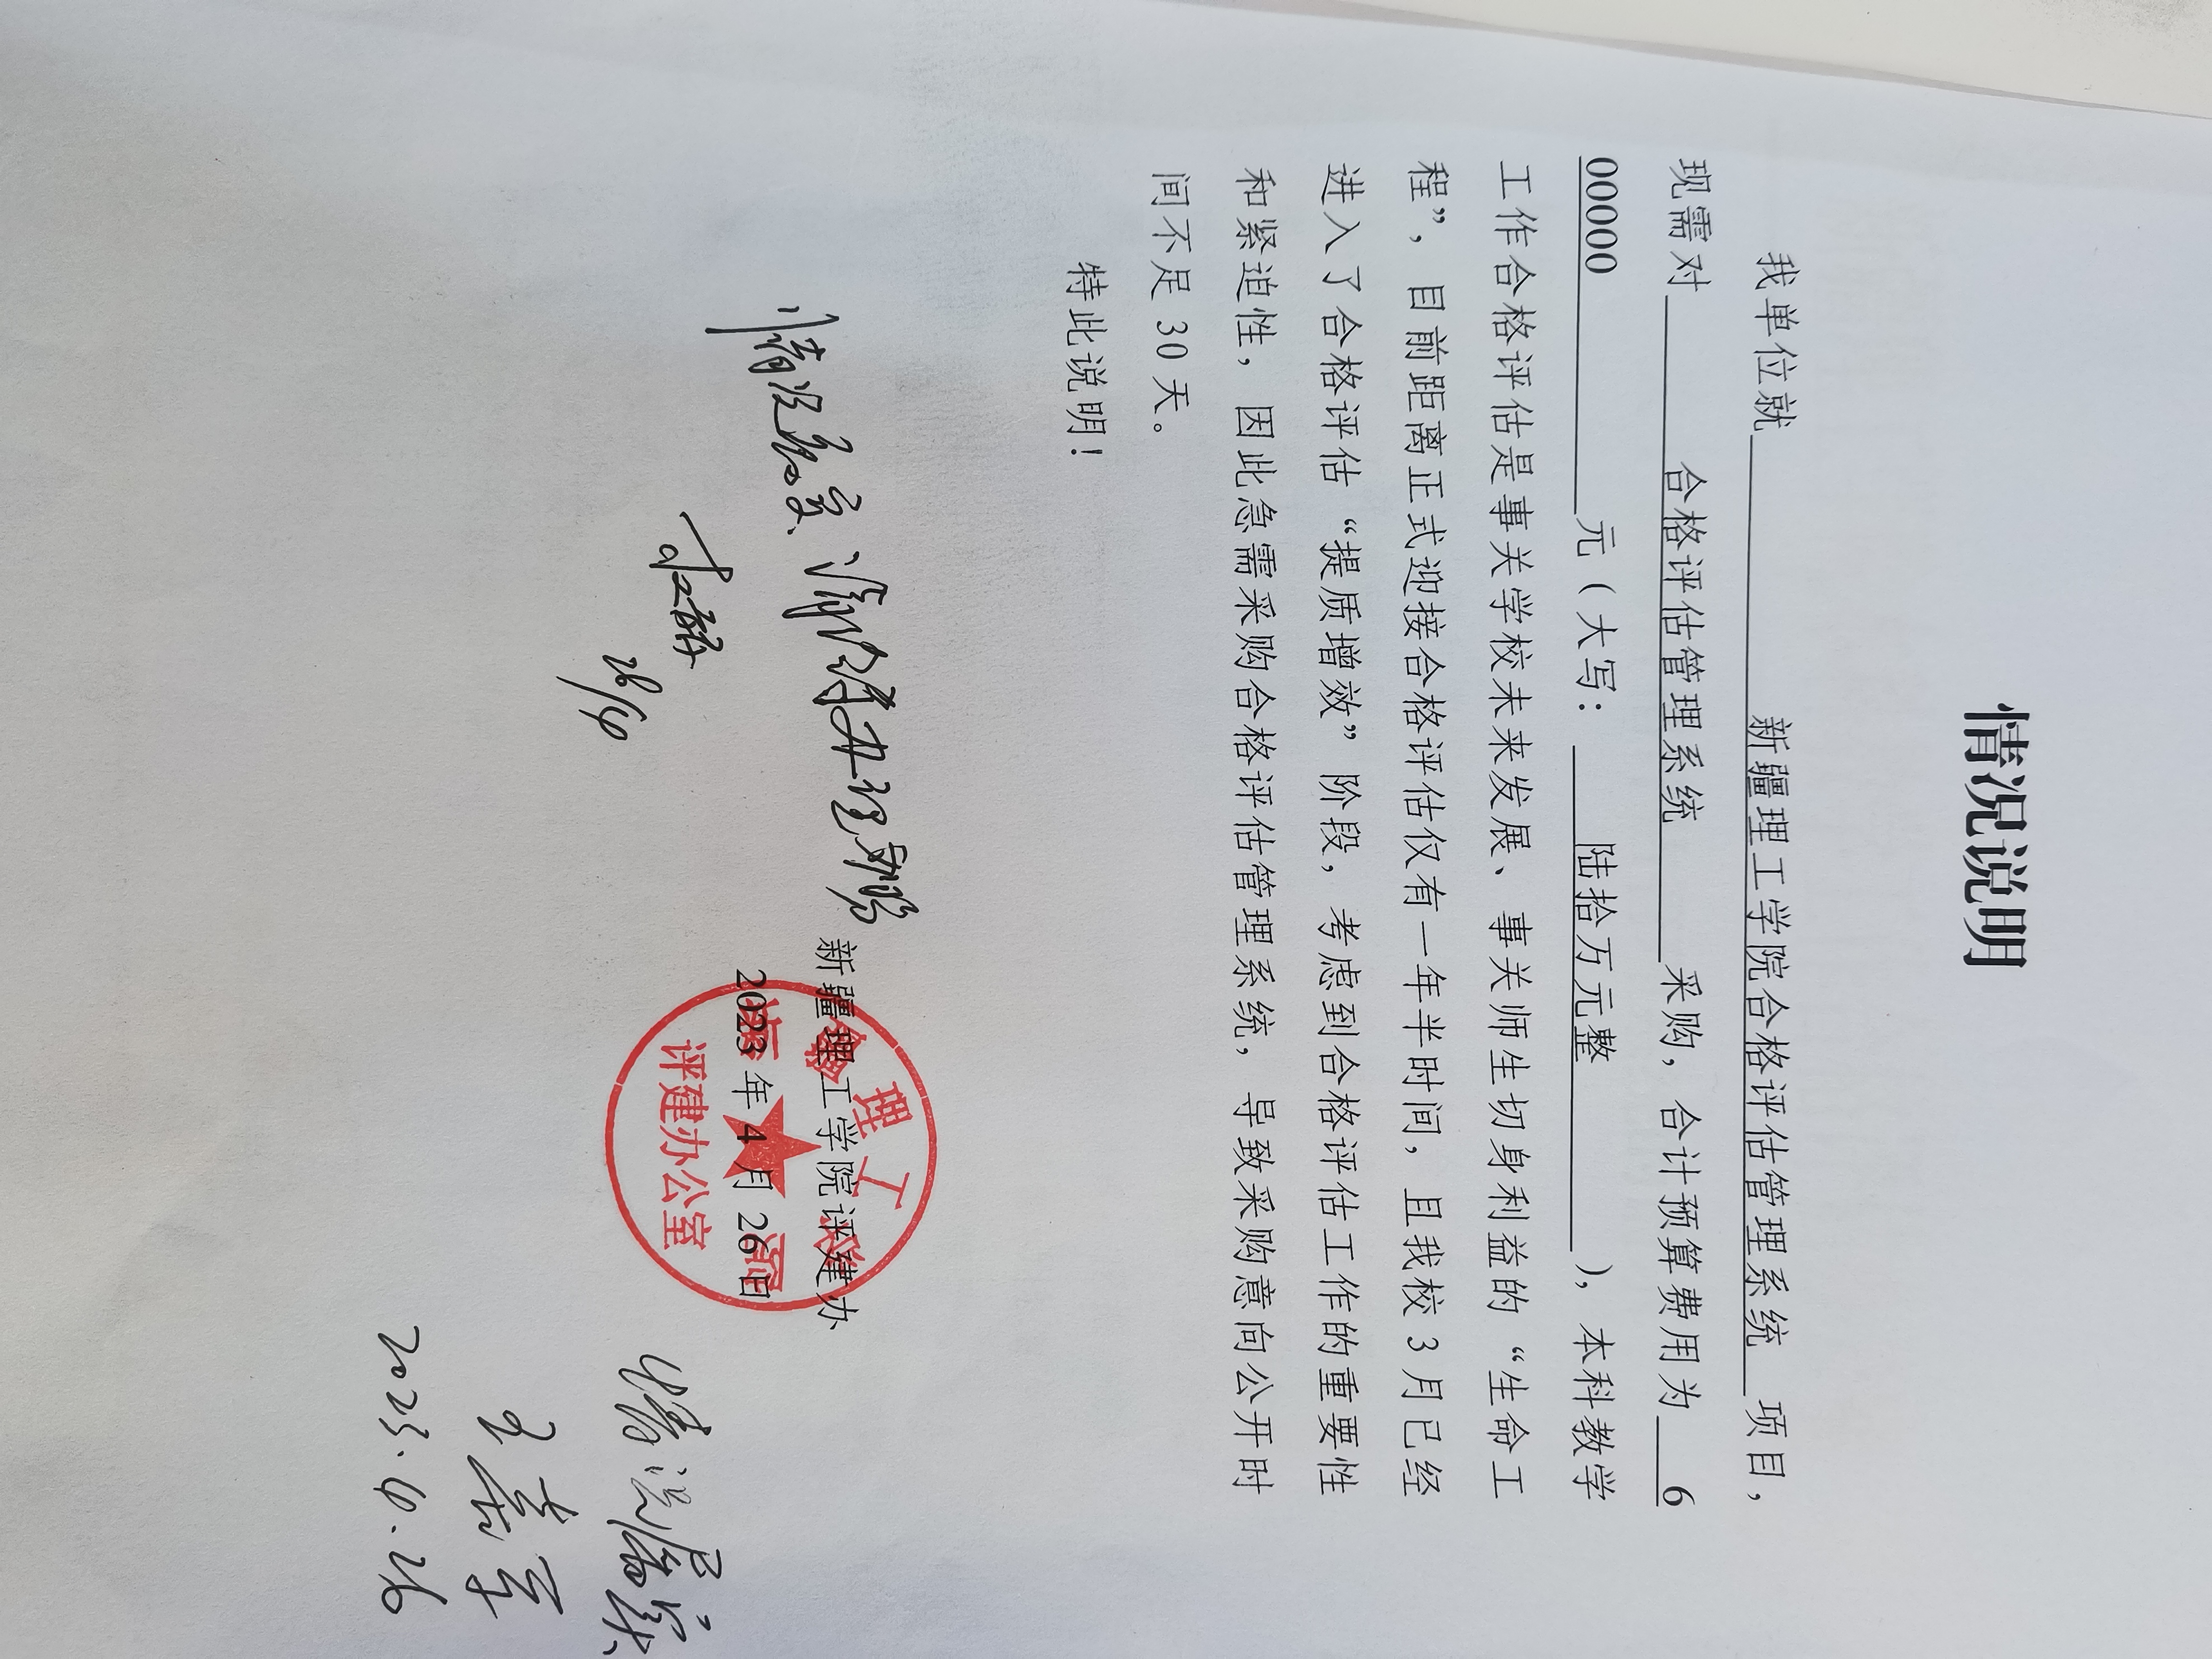 情况说明
我单位就 新疆理工学院合格评估管理系统 项目，
现需对 合格评估管理系统 采购，合计预算费用为 6
00000 元（大写： 陆拾万元整 ），本科教学
工作合格评估是事关学校未来发展、事关师生切身利益的“生命工
程”，目前距离正式迎接合格评估仅有一年半时间，且我校 3 月已经
进入了合格评估“提质增效”阶段，考虑到合格评估工作的重要性
和紧迫性，因此急需采购合格评估管理系统，导致采购意向公开时
间不足 30 天。
特此说明！
情况属实
新疆理工学院评建办
2023 年 4 月 26 日
评建办公室
26/4
情况属实
2023.4.26